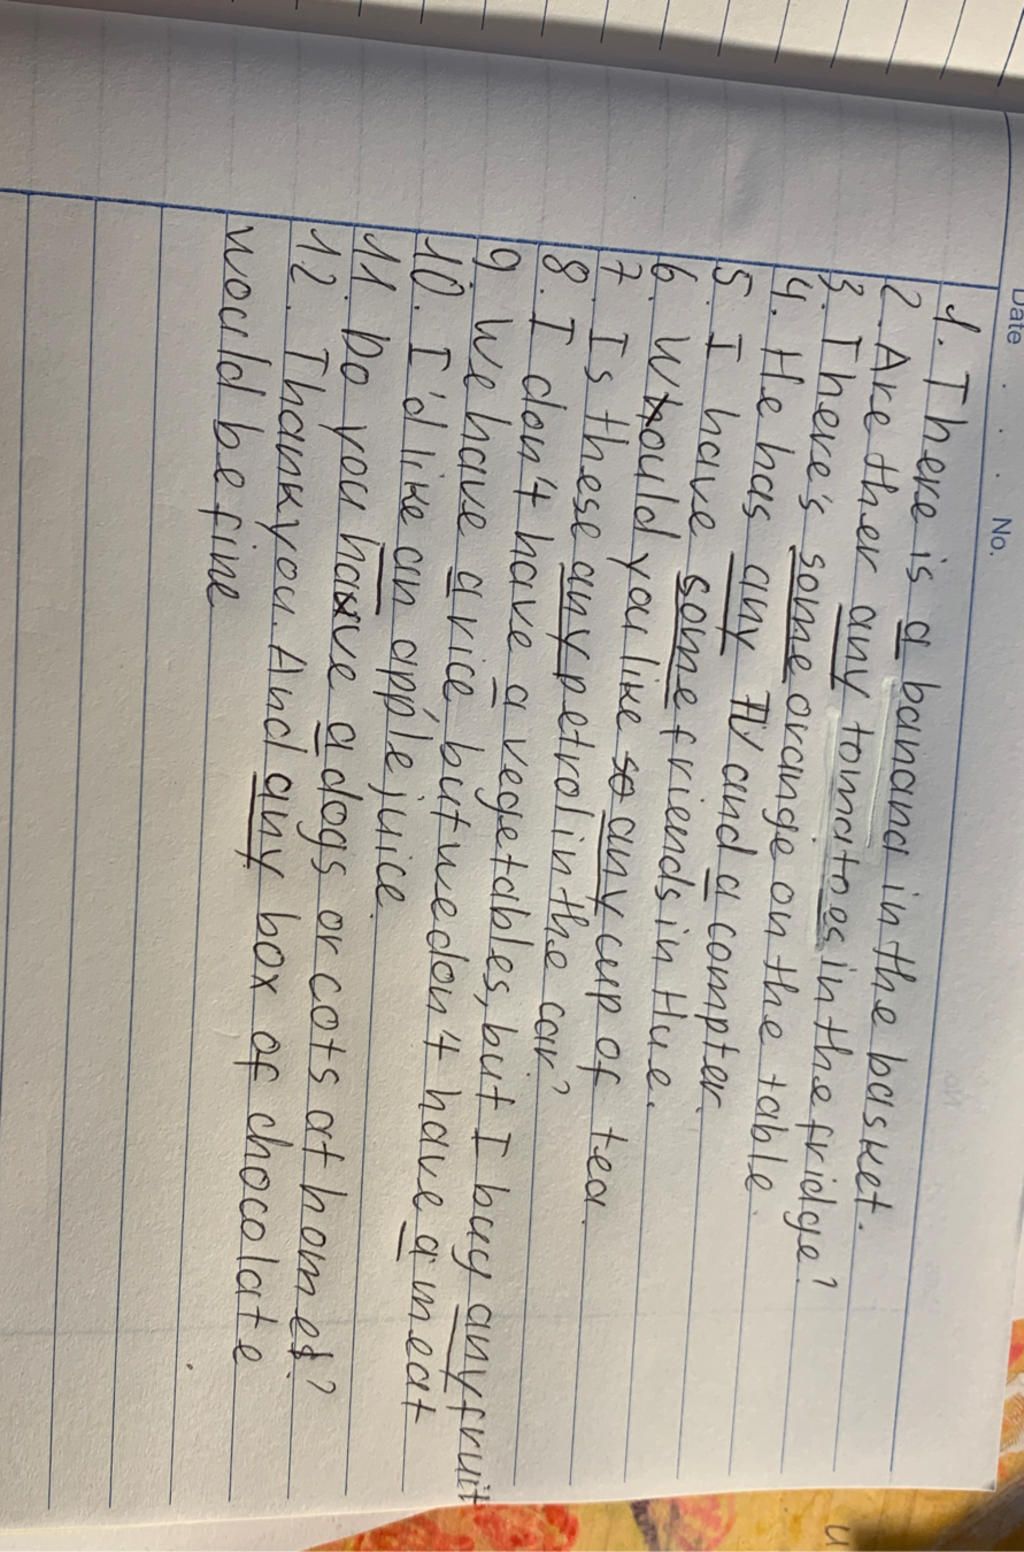 Date
No.
1. There is a banana in the basket.
2. Are ther any tomatoes in the fridge?
3. There's some orange on the table.
4. He has any TV and a compter.
5. I have some friends in Hue.
6. Would you like so any cup of tea.
7. Is these any petrol in the car?
8. I don't have a vegetables, but I buy any fruit
9. We have a rice, but we don't have a meat
10. I'd like an apple juice.
11. Do you have a dogs or cats at home?
12. Thank you. And any box of chocolate
would be fine